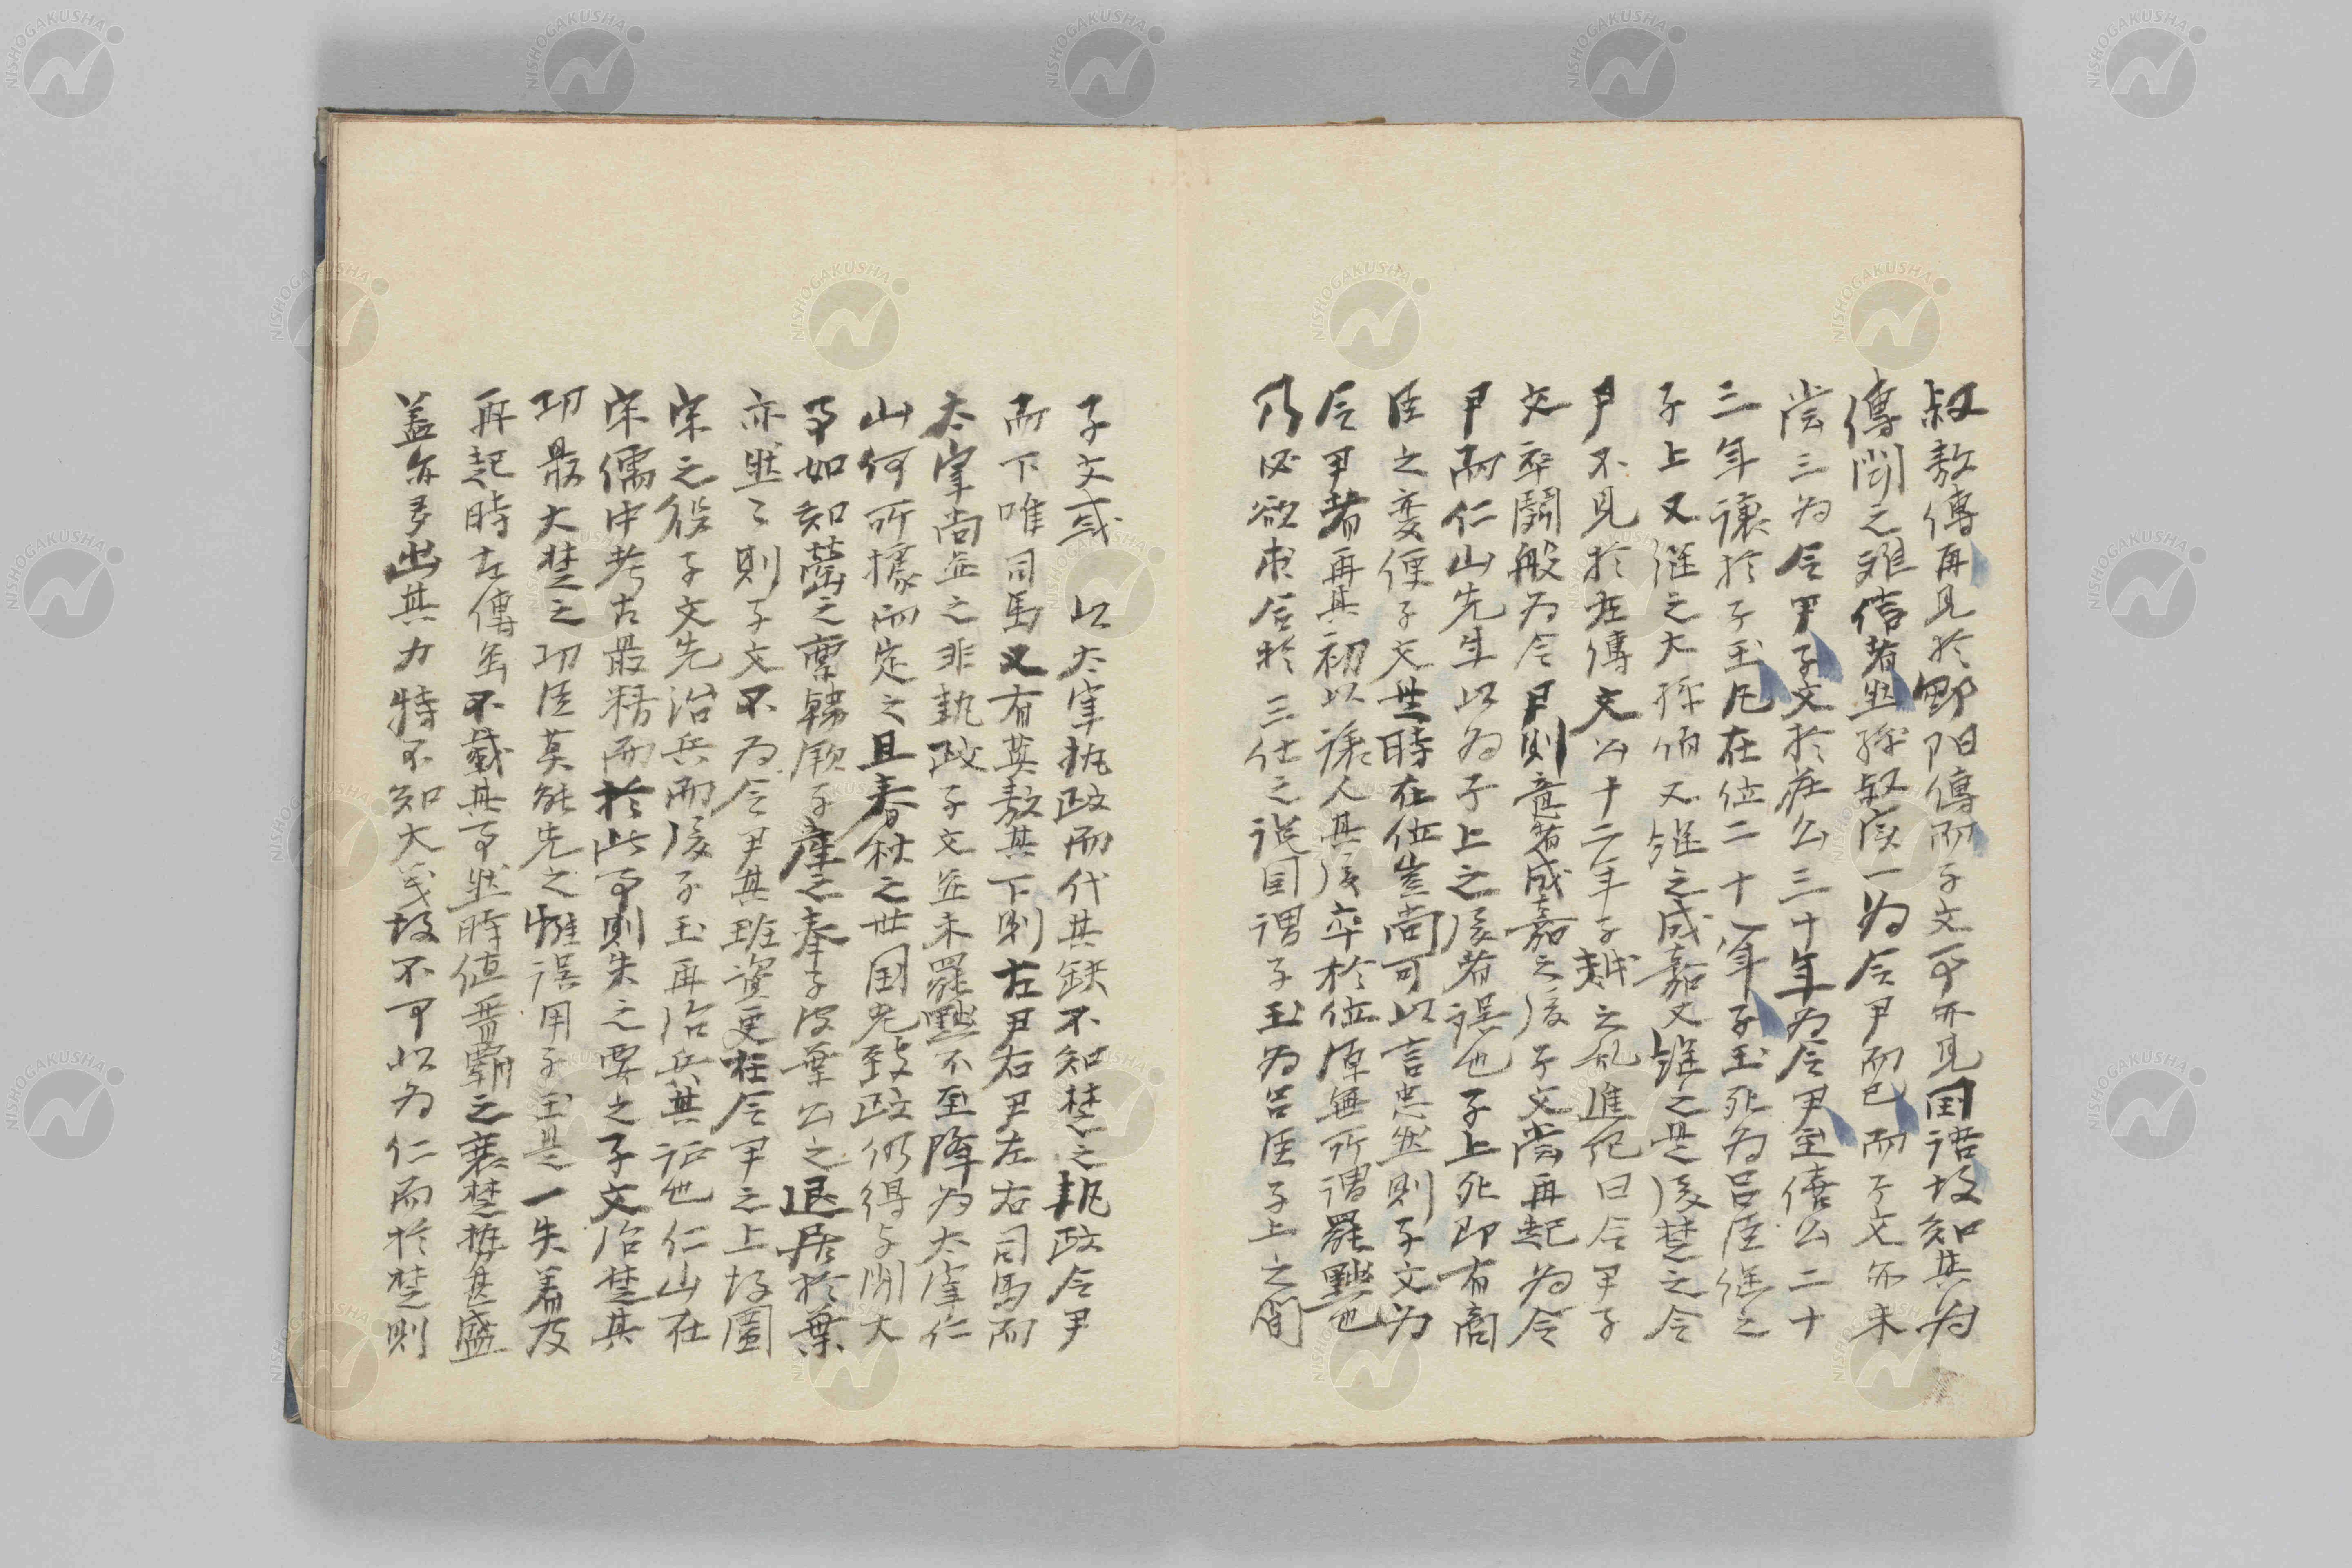 叔敖傳再見於鄒陽傳而子文事亦見国語故知其為
傳聞之難信者然孫叔實一為令尹而已而子文亦未
嘗三為令尹子文於荘公三十年為令尹至僖公二十
三年讓於子玉凡在位二十八年子玉死為呂臣継之
子上又継之大孫伯又継之成嘉又継之是後楚之令
尹不見於左傳文公十二年子越之乱追紀曰令尹子
文卒鬪般為令尹則意者成嘉之後子文嘗再起為令
尹而仁山先生以為子上之後者誤也子上死即有商
臣之変使子文其時在位豈尚可以言忠然則子文為
令尹者再其初以讓人其後卒於位原無所謂罷黜也
乃必欲求合於三仕之説因謂子玉為呂臣子上之間
子文或 以太宰執政而代其缺不知楚之執政令尹
而下唯司馬又有莫敖其下則左尹右尹左右司馬而
太宰尚並之非執政子文並未罷黜不至降為太宰仁
山何所據而定之且春秋之世国老致政仍得与聞大
事如知罃之稟韓厥子産之奉子皮葉公之退居於葉
亦然々則子文不為令尹其班資更在令尹之上故圍
宋之役子文先治兵而後子玉再治兵其証也仁山在
宋儒中考古最精而於此事則失之要之子文治楚其
功最大楚之功臣莫能先之惟誤用子玉是一失着及
再起時左傳並不載其事然時値晋霸之衰楚勢甚盛
蓋亦多出其力特不知大義故不可以為仁而於楚則